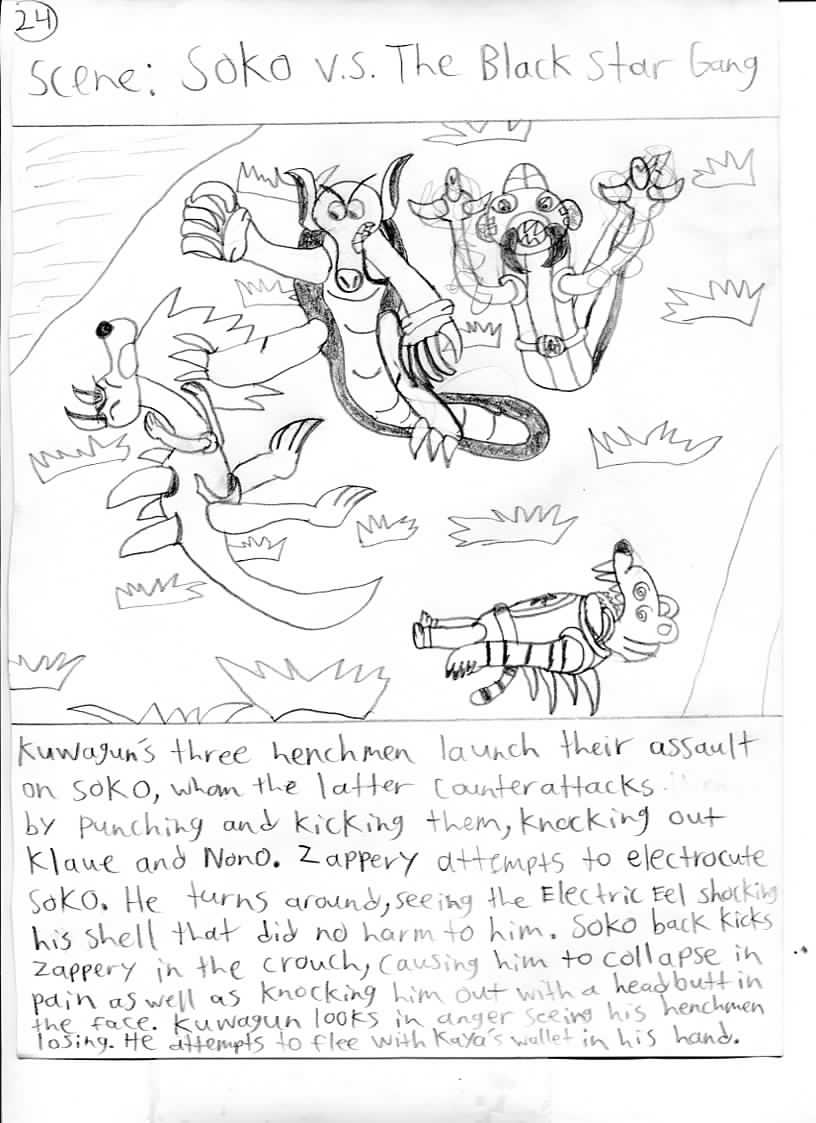 24
Scene: Soko v.s. The Black Star Gang
Kuwagun's three henchmen launch their assault
on Soko, whom the latter counterattacks
by punching and kicking them, knocking out
Klaue and Nono. Zappery attempts to electrocute
Soko. He turns around, seeing the Electric Eel shocking
his shell that did no harm to him. Soko back kicks
Zappery in the crouch, causing him to collapse in
pain as well as knocking him out with a headbutt in
the face. Kuwagun looks in anger seeing his henchmen
losing. He attempts to flee with Kaya's wallet in his hand.